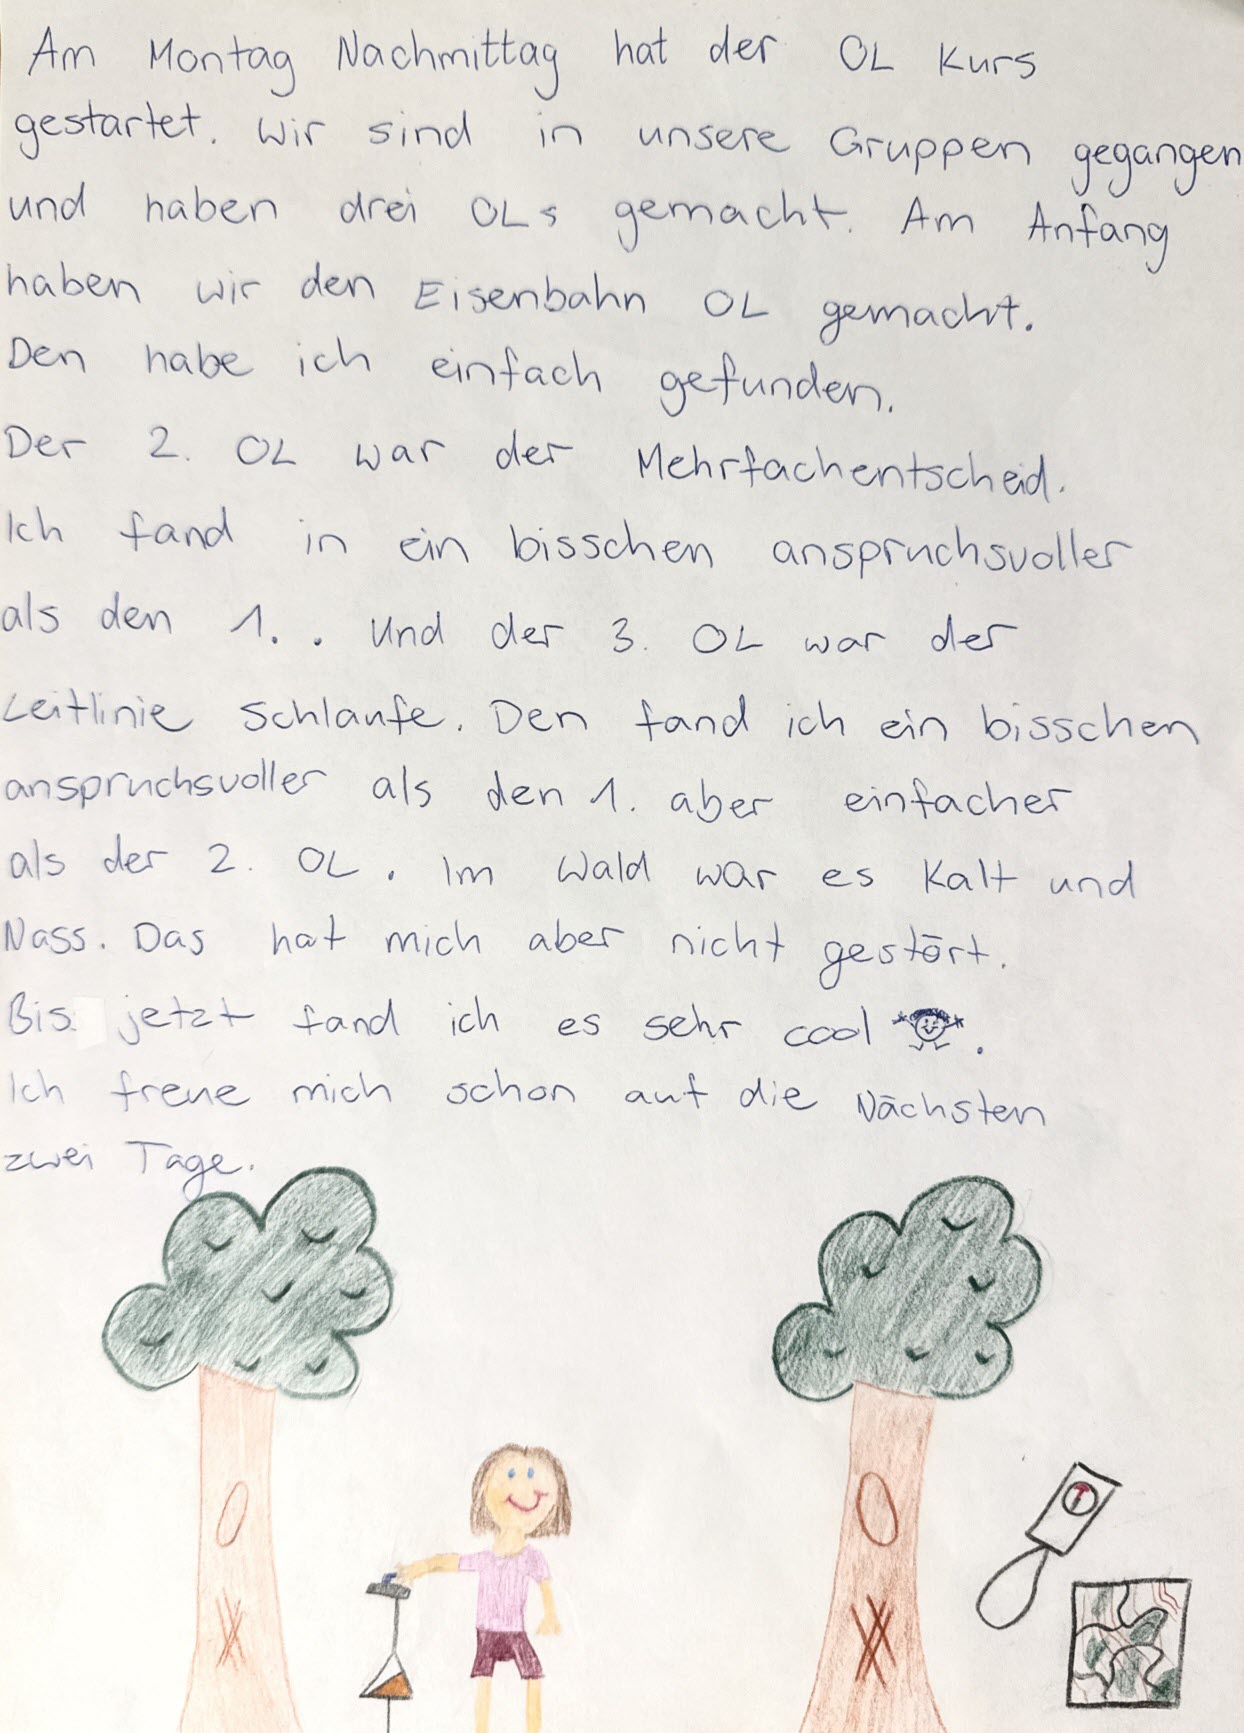 Am Montag Nachmittag hat der OL Kurs
gestartet. Wir sind in unsere Gruppen gegangen
und haben drei OLs gemacht. Am Anfang
haben wir den Eisenbahn OL gemacht.
Den habe ich einfach gefunden.
Der 2. OL war der Mehrfachentscheid.
Ich fand in ein bisschen anspruchsvoller
als den 1. . Und der 3. OL war der
Leitlinie Schlaufe. Den fand ich ein bisschen
anspruchsvoller als den 1. aber einfacher
als der 2. OL. Im Wald war es Kalt und
Nass. Das hat mich aber nicht gestört.
Bis jetzt fand ich es sehr cool .
Ich freue mich schon auf die Nächsten
zwei Tage.